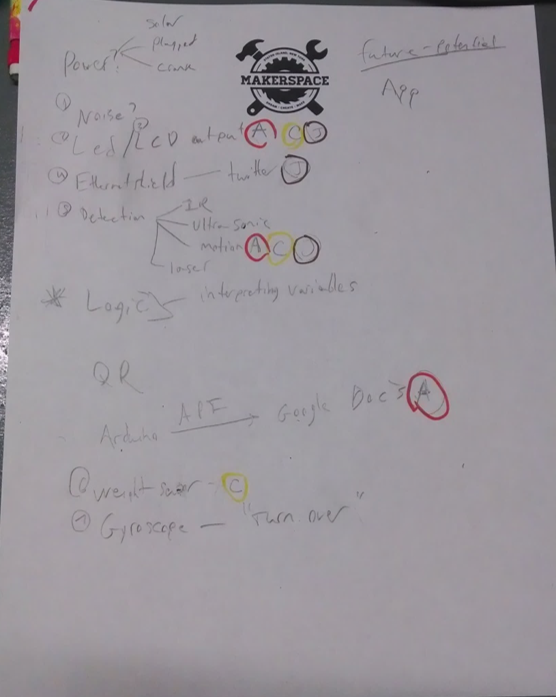 solar
Power? plugged
crank
MAKERSPACE
future-potential
App
① Noise?
Led/LCD output A C J
④ Ethernet shield — twitter J
③ Detection IR
Ultrasonic
motion A C J
laser
* Logic interpreting variables
QR
Arduino API → Google Doc's A
weight sensor - C
⑦ Gyroscope — "Turn over"